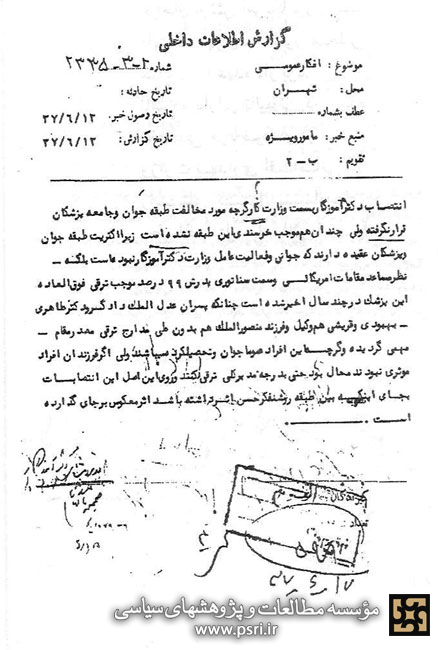 گزارش اطلاعات داخلی
موضوع : افکار عمومی
شماره ۲۳۳۵-۳-۲
محل : تهران
تاریخ حادثه :
عطف بشماره
تاریخ وصول خبر: ۳۷/۶/۱۲
منبع خبر : مامور ویژه
تاریخ گزارش : ۳۷/۶/۱۲
تقویم : ب-۲
انتصاب دکتر آموزگار بسمت وزارت کار گرچه مورد مخالفت طبقه جوان وجامعه پزشکان
قرار نگرفته ولی چندان هم موجب خرسندی این طبقه نشده است زیرا اکثریت طبقه جوان
وپزشکان عقیده دارند که جوانی وفعالیت عامل وزارت دکتر آموزگار نبوده است بلکه
نظر مساعد مقامات امریکائی وسمت سناتوری پدرش ۹۹ درصد موجب ترقی فوق العاده
این پزشک در چند سال اخیر شده است چنانکه پسران عدل الملک دادگر ودکتر طاهری
یهبودی وقریشی هم وکیل وفرزند منصورالملک هم بدون طی مدارج ترقی مصدر مقام
مهمی گردیده وگرچه این افراد عموما جوان وتحصیلکرده میباشند ولی اگر فرزندان افراد
موثری نبودند محال بود حتی بدرجه مدیرکلی ترقی کنند وروی این اصل این انتصابات
بجای اینکه بین طبقه روشنفکر حسن اثر داشته باشد اثر معکوس برجای گذارده
است
مؤسسه مطالعات و پژوهشهای سیاسی
www.psri.ir